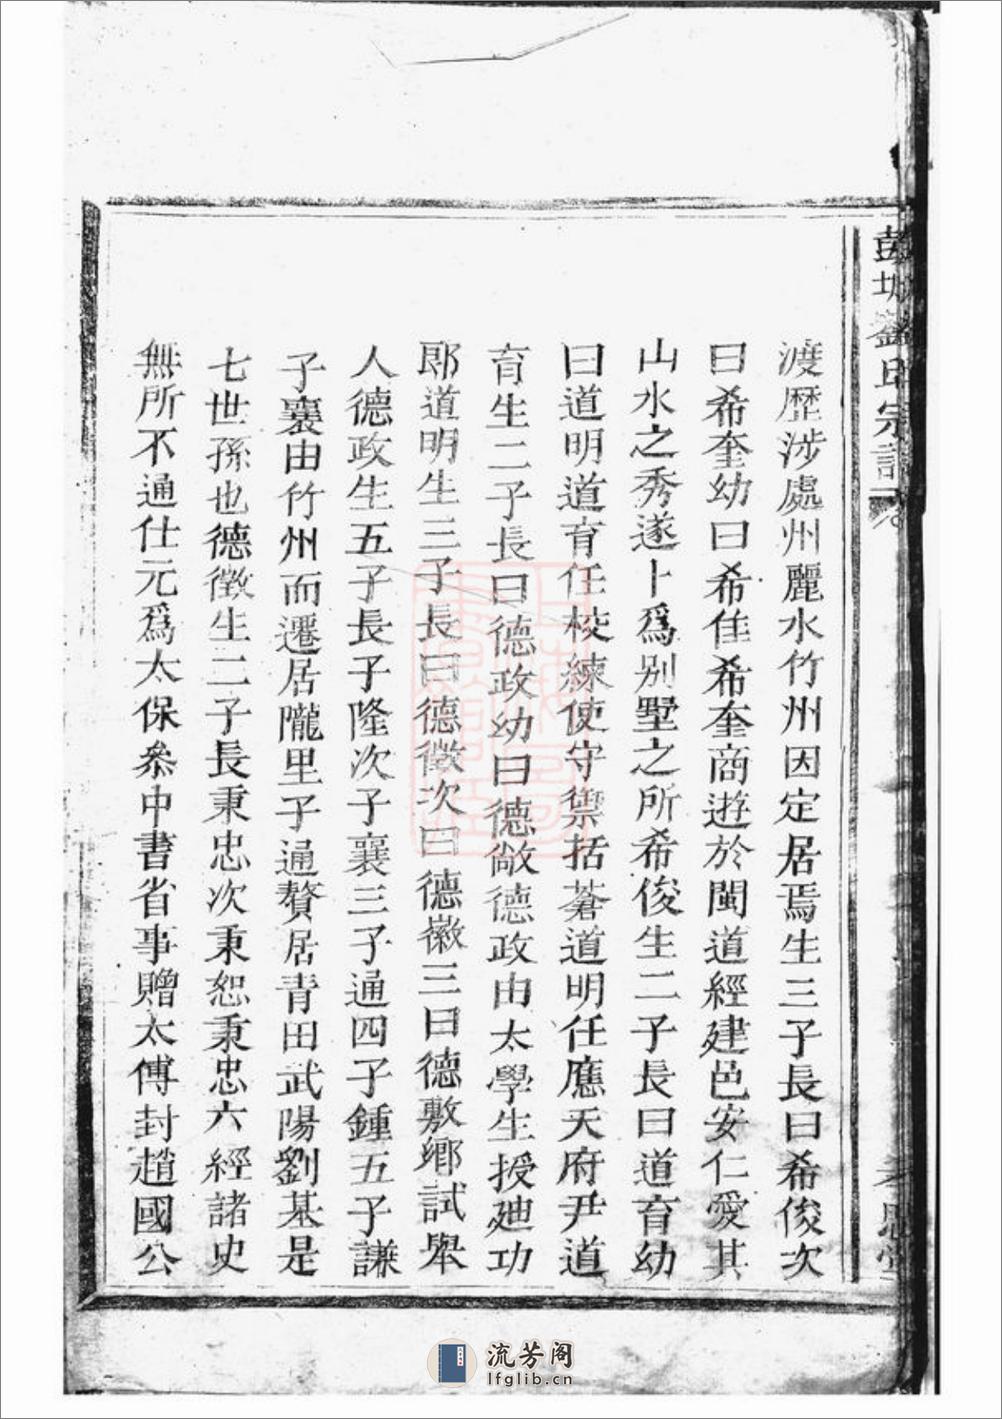 彭城劉氏宗譜
渡歴涉處州麗水竹州因定居焉生三子長曰希俊次
曰希奎幼曰希佳希奎商遊於閩道經建邑安仁愛其
山水之秀遂卜爲别墅之所希俊生二子長曰道育幼
曰道明道育任校練使守禦括蒼道明任應天府尹道
育生二子長曰德政幼曰德敞德政由太學生授廸功
郎道明生三子長曰德徵次曰德徽三曰德敷鄉試舉
人德政生五子長子隆次子襄三子通四子鍾五子謙
子襄由竹州而遷居隴里子通贅居青田武陽劉基是
七世孫也德徵生二子長秉忠次秉恕秉忠六經諸史
無所不通仕元爲太保叅中書省事贈太傅封趙國公
流芳阁
lfglib.cn